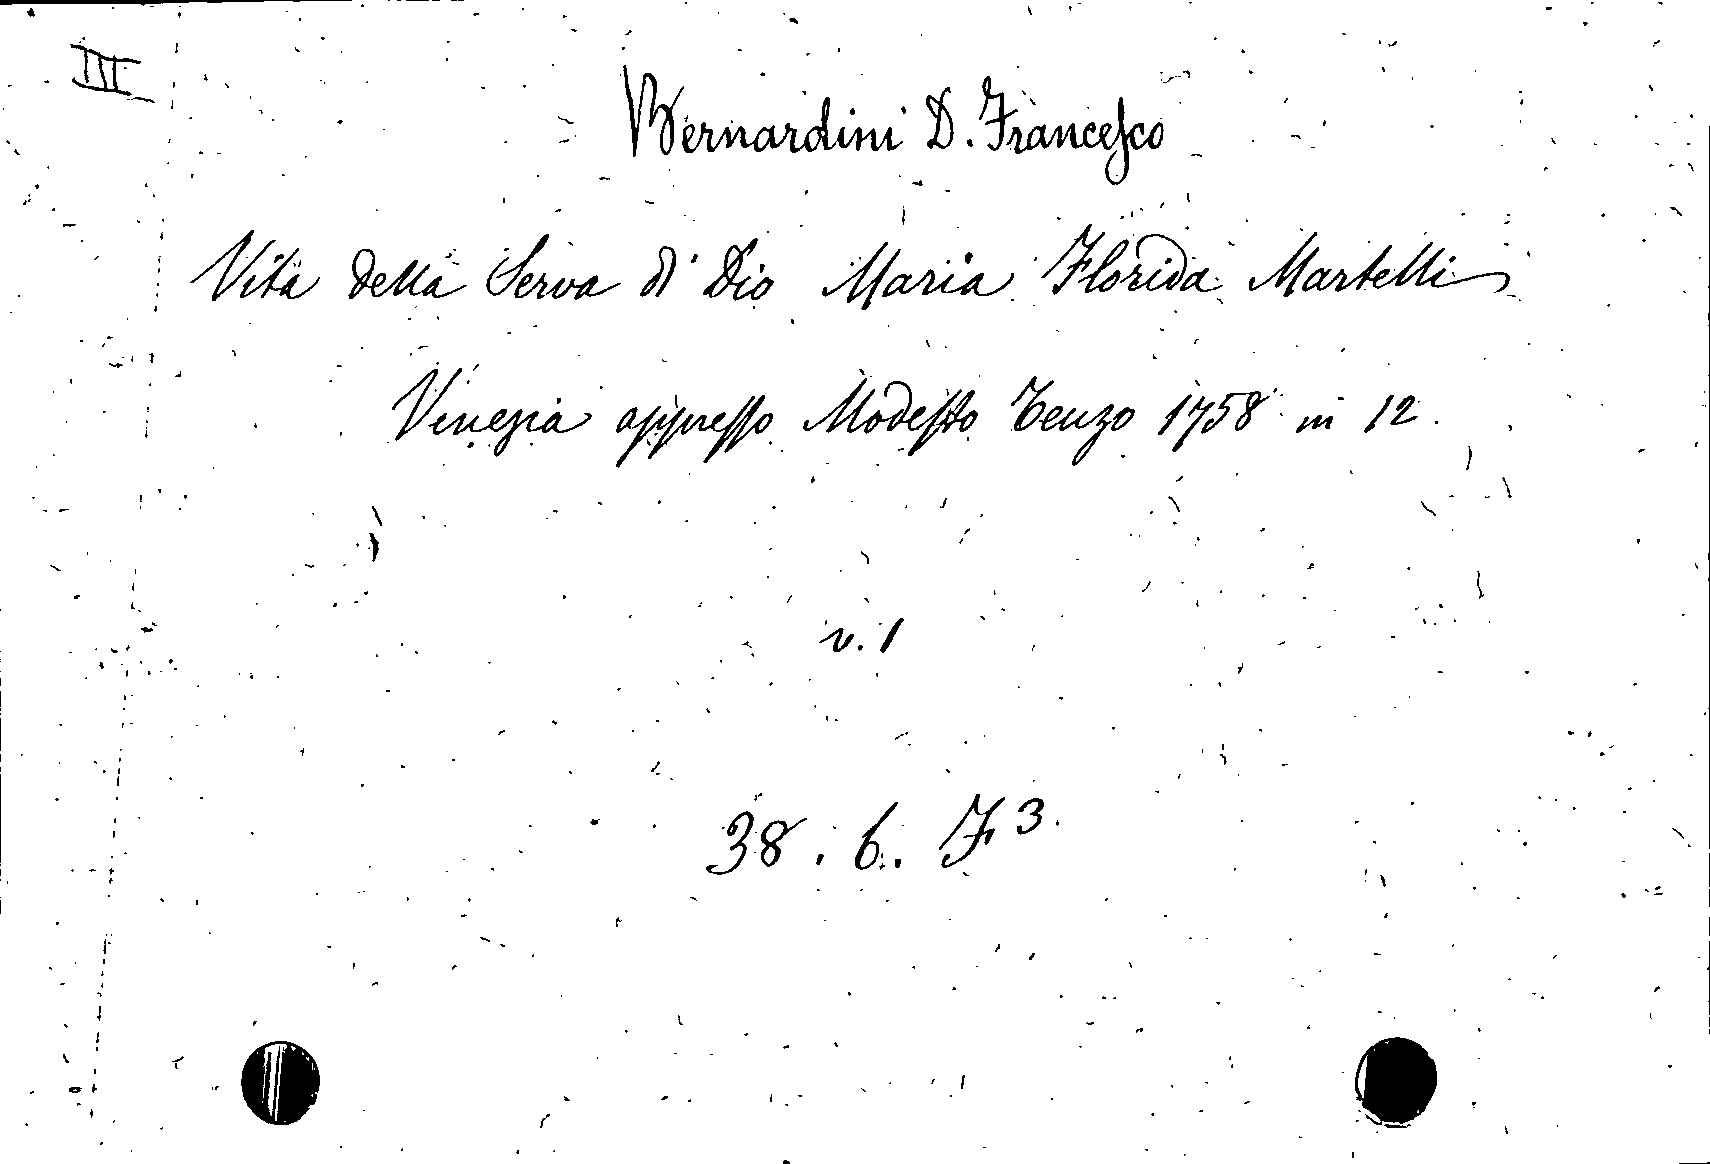 III
Bernardini D. Francesco
Vita della Serva di Dio Maria Florida Martelli
Venezia appresso Modesto Tenzo 1758 in 12.
v. 1
38. 6. F 3.